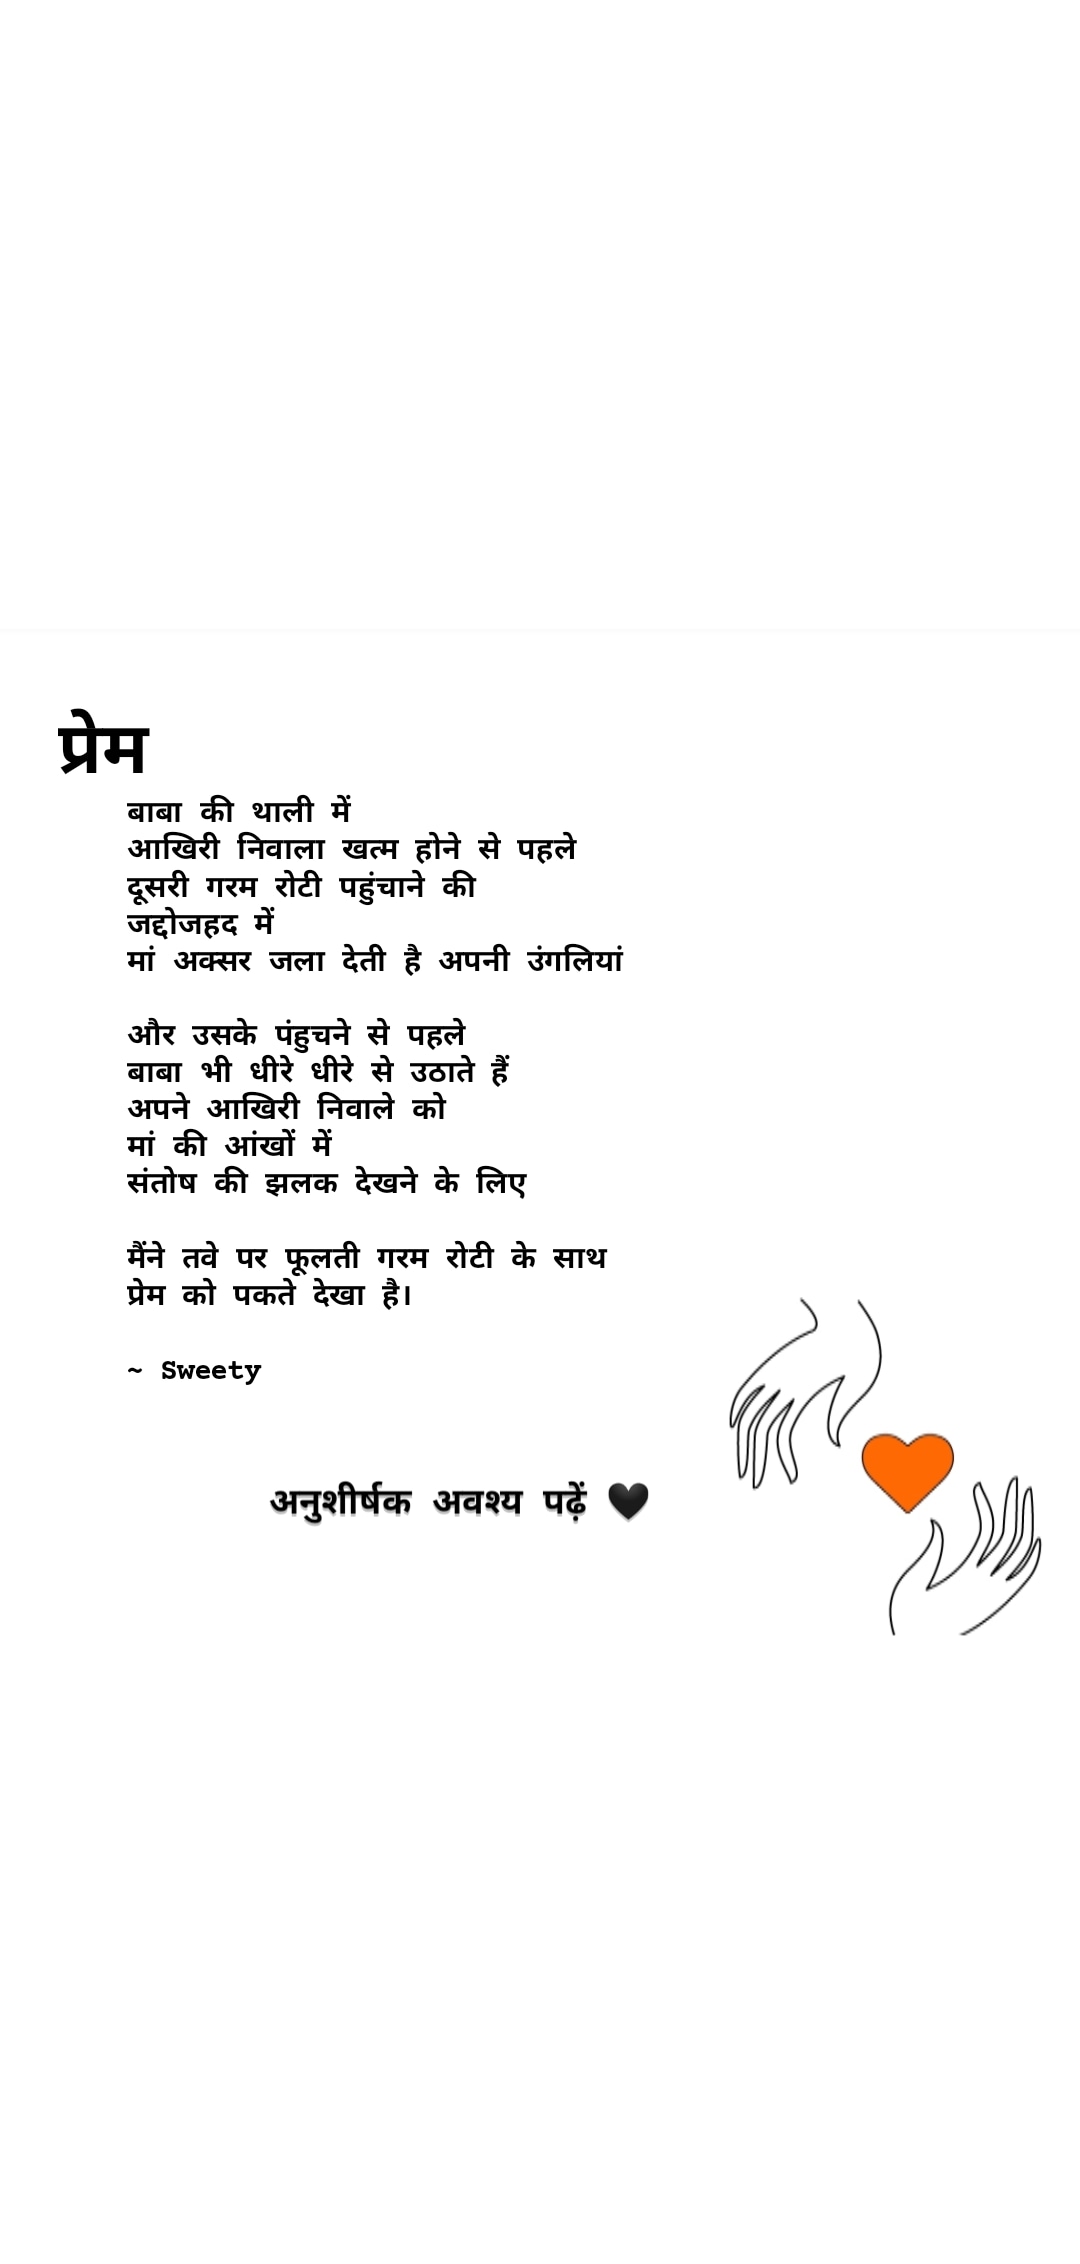 प्रेम
बाबा की थाली में
आखिरी निवाला खत्म होने से पहले
दूसरी गरम रोटी पहुंचाने की
जद्दोजहद में
मां अक्सर जला देती है अपनी उंगलियां
और उसके पंहुचने से पहले
बाबा भी धीरे धीरे से उठाते हैं
अपने आखिरी निवाले को
मां की आंखों में
संतोष की झलक देखने के लिए
मैंने तवे पर फूलती गरम रोटी के साथ
प्रेम को पकते देखा है।
~ Sweety
अनुशीर्षक अवश्य पढ़ें 🖤